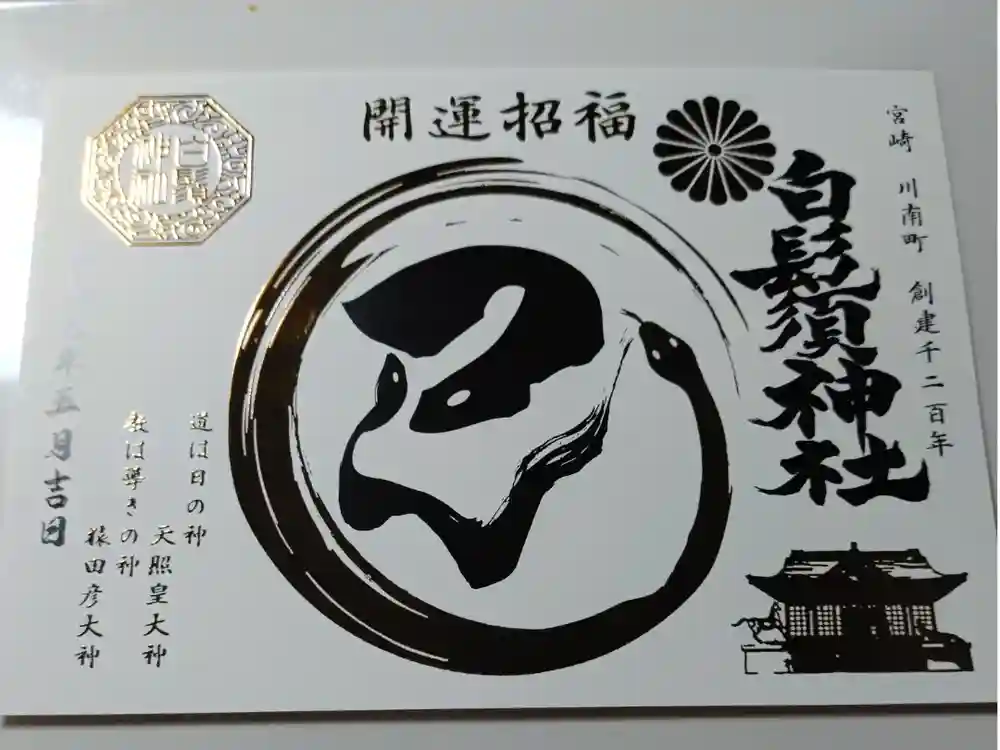 開運招福
宮崎 川南町 創建千二百年
白鬚須神社
巳
道は日の神
天照皇大神
教は導きの神
猿田彦大神
年五月吉日